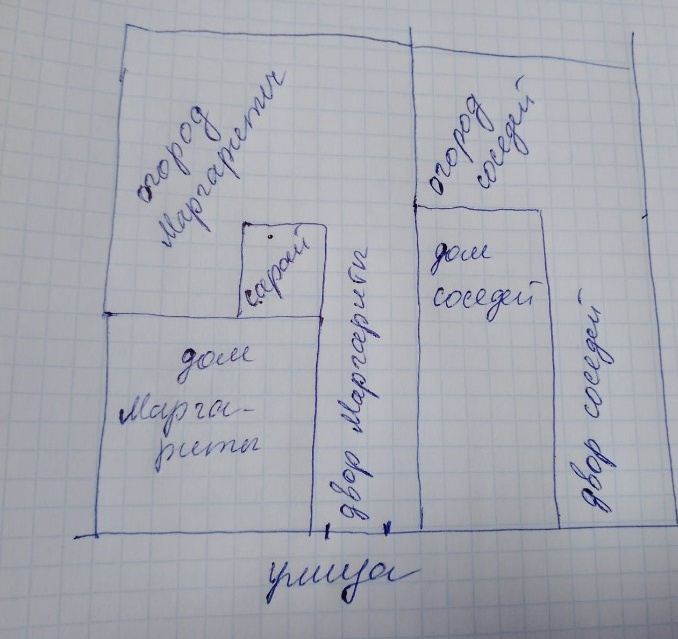 огород
Маргариты
огород
соседей
сарай
дом
Марга-
риты
двор Маргариты
дом
соседей
двор соседей
улица